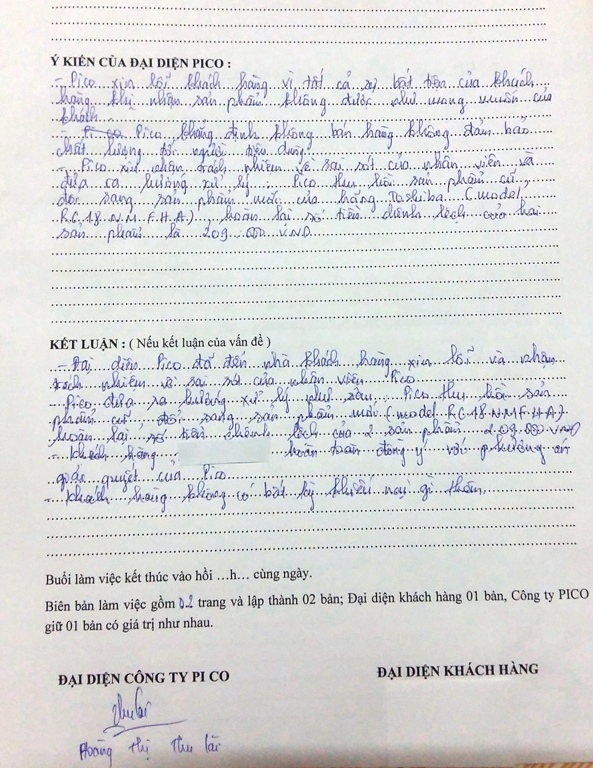 Ý KIẾN CỦA ĐẠI DIỆN PICO :
- Pico xin lỗi khách hàng vì tất cả sự bất tiện của khách
hàng khi nhận sản phẩm không được như mong muốn của
khách.
- Pico khẳng định không bán hàng không đảm bảo
chất lượng tới người tiêu dùng.
- Pico xin nhận trách nhiệm về sai sót của nhân viên và
đưa ra hướng xử lý: Pico thu hồi sản phẩm cũ,
đổi sang sản phẩm mới của hãng Toshiba (model,
RC.18.N.M.F.H.A), hoàn lại số tiền chênh lệch của hai
sản phẩm là 209.000 VNĐ.
KẾT LUẬN : ( Nếu kết luận của vấn đề )
- Đại diện Pico đã đến nhà khách hàng xin lỗi và nhận
trách nhiệm về sai sót của nhân viên Pico.
- Pico đưa ra hướng xử lý như sau: Pico thu hồi sản
phẩm cũ, đổi sang sản phẩm mới (model RC-18-NMFHA)
hoàn lại số tiền chênh lệch của 2 sản phẩm 209.000 VNĐ
- Khách hàng hoàn toàn đồng ý với phương án
giải quyết của Pico
- Khách hàng không có bất kỳ khiếu nại gì thêm.
Buổi làm việc kết thúc vào hồi ...h... cùng ngày.
Biên bản làm việc gồm 02 trang và lập thành 02 bản; Đại diện khách hàng 01 bản, Công ty PICO
giữ 01 bản có giá trị như nhau.
ĐẠI DIỆN CÔNG TY PI CO
ĐẠI DIỆN KHÁCH HÀNG
Hoàng Thị Thu